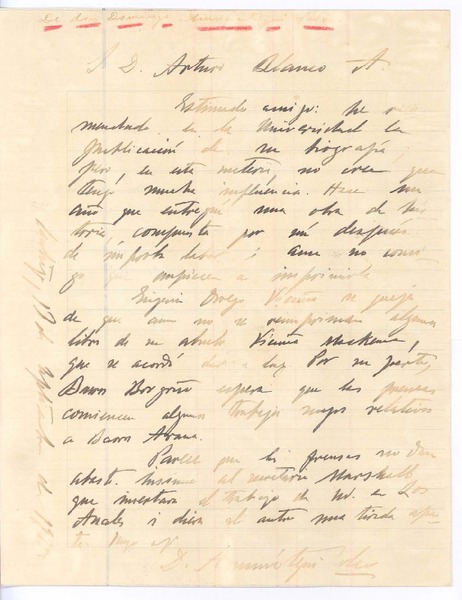 De don Domingo
S D. Arturo Blanco A.
Estimado amigo: he reco
mendado en la Universidad la
publicación de su biografía,
pero, en esta materia, no creo que
tengo mucha influencia. Hace un
año que entregué una obra de his
toria compuesta por mí después
de ímproba labor i aun no consi
go que empiecen a imprimirla
Eugenio Orrego Vicuña se queja
de que aun no se reimpriman algunos
libros de su abuelo Vicuña Mackenna,
que se acordó dar a luz. Por su parte,
Barros Borgoño espera que las prensas
comiencen algunos trabajos suyos relativos
a Barros Arana.
Parece que las prensas no dan
abasto. Insinué al secretario Marshall
que insertara el trabajo de Ud. en Los
Anales i diera al autor una tirada apar
te.
D. Amunátegui Solar